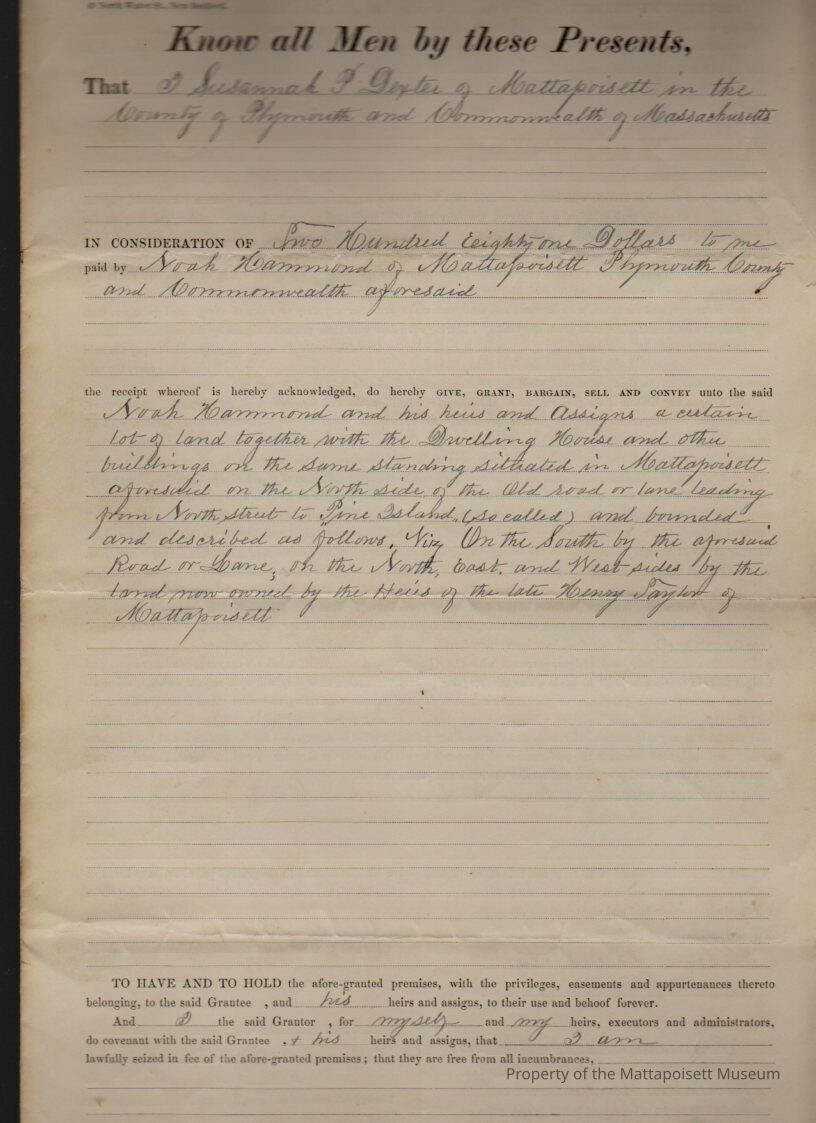 6 North Water St., New Bedford.
Know all Men by these Presents,
That I Susannah P Dexter of Mattapoisett in the
County of Plymouth and Commonwealth of Massachusetts
IN CONSIDERATION OF Two Hundred Eighty one Dollars to me
paid by Noah Hammond of Mattapoisett Plymouth County
and Commonwealth aforesaid
the receipt whereof is hereby acknowledged, do hereby GIVE, GRANT, BARGAIN, SELL AND CONVEY unto the said
Noah Hammond and his heirs and Assigns a certain
lot of land together with the Dwelling House and other
buildings on the same standing situated in Mattapoisett
aforesaid on the North side of the Old road or lane leading
from North street to Pine Island, (so called) and bounded
and described as follows. Viz, On the South by the aforesaid
Road or Lane, on the North, East. and West sides by the
land now owned by the Heirs of the late Henry Taylor of
Mattapoisett
TO HAVE AND TO HOLD the afore-granted premises, with the privileges, easements and appurtenances thereto
belonging, to the said Grantee , and his heirs and assigns, to their use and behoof forever.
And I the said Grantor , for myself and my heirs, executors and administrators,
do covenant with the said Grantee , & his heirs and assigns, that I am
lawfully seized in fee of the afore-granted premises ; that they are free from all incumbrances,
Property of the Mattapoisett Museum